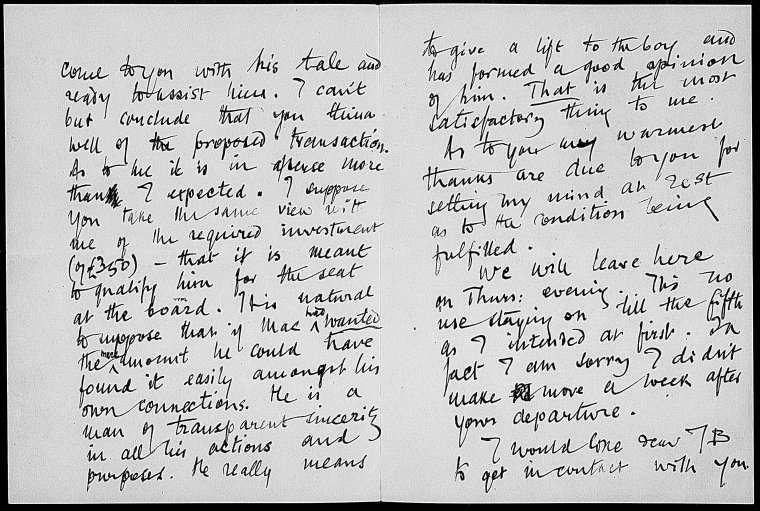 come to you with his tale and
ready to assist him. I can't
but conclude that you think
well of the proposed transaction.
As to me it is in a sense more
than I expected. I suppose
you take the same view with
me of the required investment
(of £350) – that it is meant
to qualify him for the seat
at the board. It is natural
to suppose that if Mac had wanted
the mere amount he could have
found it easily amongst his
own connections. He is a
man of transparent sincerity
in all his actions and
purposes. He really means
to give a lift to the boy and
has formed a good opinion
of him. That is the most
satisfactory thing to me.
As to you my warmest
thanks are due to you for
setting my mind at rest
as to the condition being
fulfilled.
We will leave here
on Thurs: evening. This no
use staying on till the fifth
as I intended at first. In
fact I am sorry I didn't
make a move a week after
your departure.
I would love dear JB
to get in contact with you